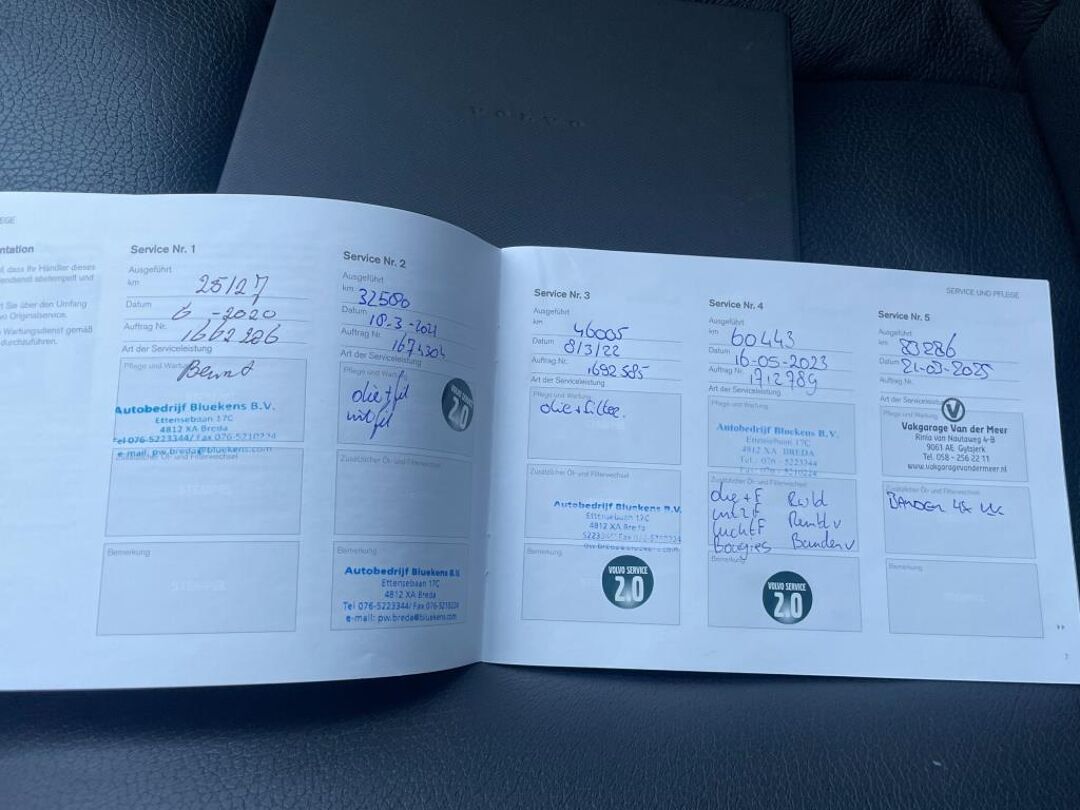 VOLVO
EGE
ntation
ß dass Ihr Händler dieses
endienst abstempelt und
rt Sie über den Umfang
vo Originalservice.
Wartungsdienst gemäß
durchzuführen.
Service Nr. 1
Ausgeführt
km 25127
Datum 6 -2020
Auftrag Nr. 1662286
Art der Serviceleistung
Pflege und Wartung
Autobedrijf Bluekens B.V.
Ettensebaan 17C
4812 XA Breda
Tel 076-5223344/ Fax 076-5210224
e-mail: pw.breda@bluekens.com
Zusätzlicher Öl- und Filterwechsel
Bemerkung
Service Nr. 2
Ausgeführt
km 32580
Datum 18-3-2021
Auftrag Nr. 1674304
Art der Serviceleistung
Pflege und Wartung
olie+fil
int fil
VOLVO SERVICE
2.0
Zusätzlicher Öl- und Filterwechsel
Bemerkung
Autobedrijf Bluekens B.V.
Ettensebaan 17C
4812 XA Breda
Tel 076-5223344/ Fax 076-5210224
e-mail: pw.breda@bluekens.com
SERVICE UND PFLEGE
Service Nr. 3
Ausgeführt
km 46005
Datum 8/3/22
Auftrag Nr. 1692585
Art der Serviceleistung
Pflege und Wartung
olie+filter.
Zusätzlicher Öl- und Filterwechsel
Autobedrijf Bluekens B.V.
Ettensebaan 17C
4812 XA Breda
Bemerkung
VOLVO SERVICE
2.0
Service Nr. 4
Ausgeführt
km 60443
Datum 16-05-2023
Auftrag Nr. 1712789
Art der Serviceleistung
Pflege und Wartung
Autobedrijf Bluekens B.V.
Ettensebaan 17C
4812 XA BREDA
Tel.: 076 - 5223344
Fax 076-5210224
Zusätzlicher Öl- und Filterwechsel
olie+F
int F Remblv
luchtF Bandenv
Bougies
Bemerkung
VOLVO SERVICE
2.0
Service Nr. 5
Ausgeführt
km 83286
Datum 21-03-2025
Auftrag Nr.
Art der Serviceleistung
Pflege und Wartung
V
Vakgarage Van der Meer
Rinia van Nautaweg 4-B
9061 AE Gytsjerk
Tel. 058 - 256 22 11
www.vakgaragevandermeer.nl
Zusätzlicher Öl- und Filterwechsel
BANDEN 4x
Bemerkung
▸▸
7